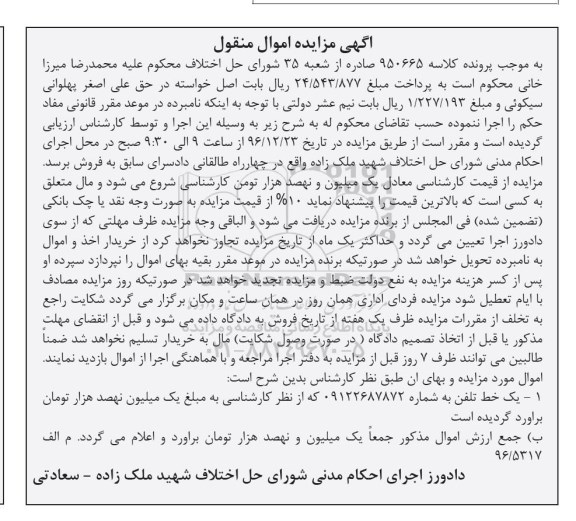 آگهی مزایده اموال منقول
به موجب پرونده کلاسه ۹۵۰۶۶۵ صادره از شعبه ۳۵ شورای حل اختلاف محکوم علیه محمدرضا میرزا
خانی محکوم است به پرداخت مبلغ ۲۴/۵۴۳/۸۷۷ ریال بابت اصل خواسته در حق علی اصغر پهلوانی
سیکوئی و مبلغ ۱/۲۲۷/۱۹۳ ریال بابت نیم عشر دولتی با توجه به اینکه نامبرده در موعد مقرر قانونی مفاد
حکم را اجرا ننموده حسب تقاضای محکوم له به شرح زیر به وسیله این اجرا و توسط کارشناس ارزیابی
گردیده است و مقرر است از طریق مزایده در تاریخ ۹۶/۱۲/۲۳ از ساعت ۹ الی ۹:۳۰ صبح در محل اجرای
احکام مدنی شورای حل اختلاف شهید ملک زاده واقع در چهارراه طالقانی دادسرای سابق به فروش برسد.
مزایده از قیمت کارشناسی معادل یک میلیون و نهصد هزار تومن کارشناسی شروع می شود و مال متعلق
به کسی است که بالاترین قیمت را پیشنهاد نماید ۱۰% از قیمت مزایده به صورت وجه نقد یا چک بانکی
(تضمین شده) فی المجلس از برنده مزایده دریافت می شود و الباقی وجه مزایده ظرف مهلتی که از سوی
دادورز اجرا تعیین می گردد و حداکثر یک ماه از تاریخ مزایده تجاوز نخواهد کرد از خریدار اخذ و اموال
به نامبرده تحویل خواهد شد در صورتیکه برنده مزایده در موعد مقرر بقیه بهای اموال را نپردازد سپرده او
پس از کسر هزینه مزایده به نفع دولت ضبط و مزایده تجدید خواهد شد در صورتیکه روز مزایده مصادف
با ایام تعطیل شود مزایده فردای اداری همان روز در همان ساعت و مکان برگزار می گردد شکایت راجع
به تخلف از مقررات مزایده ظرف یک هفته از تاریخ فروش به دادگاه داده می شود و قبل از انقضای مهلت
مذکور یا قبل از اتخاذ تصمیم دادگاه ( در صورت وصول شکایت) مال به خریدار تسلیم نخواهد شد ضمناً
طالبین می توانند ظرف ۷ روز قبل از مزایده به دفتر اجرا مراجعه و با هماهنگی اجرا از اموال بازدید نمایند.
اموال مورد مزایده و بهای ان طبق نظر کارشناس بدین شرح است:
۱ - یک خط تلفن به شماره ۰۹۱۲۲۶۸۷۸۷۲ که از نظر کارشناسی به مبلغ یک میلیون نهصد هزار تومان
براورد گردیده است
ب) جمع ارزش اموال مذکور جمعاً یک میلیون و نهصد هزار تومان براورد و اعلام می گردد. م الف
۹۶/۵۳۱۷
دادورز اجرای احکام مدنی شورای حل اختلاف شهید ملک زاده - سعادتی